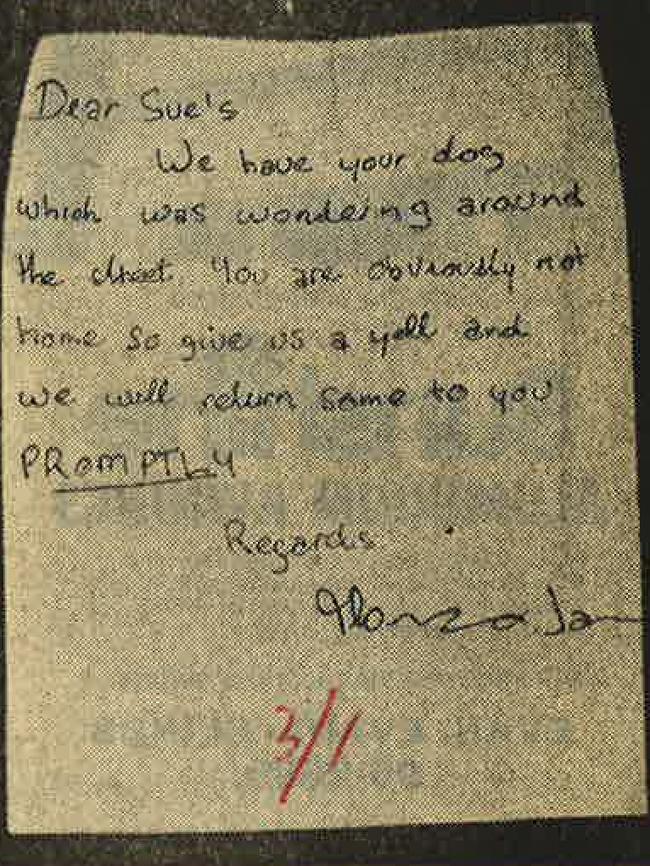 Dear Sue's
We have your dog
which was wondering around
the street. You are obviously not
home so give us a yell and
we will return same to you
PROMPTLY
Regards
3/1